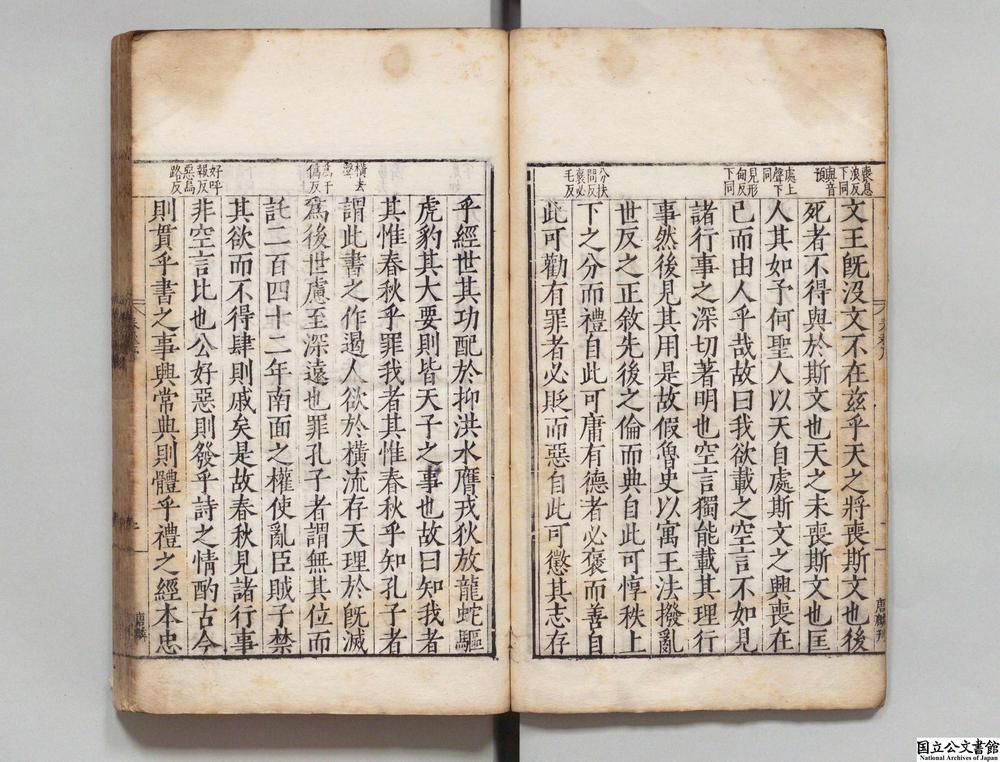 喪息浪反下同
與音預
處上聲下同
見形甸反下同
分扶問反
褒必毛反
文王旣沒文不在茲乎天之將喪斯文也後
死者不得與於斯文也天之未喪斯文也匡
人其如予何聖人以天自處斯文之興喪在
已而由人乎哉故曰我欲載之空言不如見
諸行事之深切著明也空言獨能載其理行
事然後見其用是故假魯史以寓王法撥亂
世反之正敘先後之倫而典自此可惇秩上
下之分而禮自此可庸有德者必褒而善自
此可勸有罪者必貶而惡自此可懲其志存
唐麟刊
橫去聲
爲于僞反
好呼報反
惡烏路反
乎經世其功配於抑洪水膺戎狄放龍蛇驅
虎豹其大要則皆天子之事也故曰知我者
其惟春秋乎罪我者其惟春秋乎知孔子者
謂此書之作遏人欲於橫流存天理於旣滅
爲後世慮至深遠也罪孔子者謂無其位而
託二百四十二年南面之權使亂臣賊子禁
其欲而不得肆則戚矣是故春秋見諸行事
非空言比也公好惡則發乎詩之情酌古今
則貫乎書之事興常典則體乎禮之經本忠
唐麟
国立公文書館
National Archives of Japan